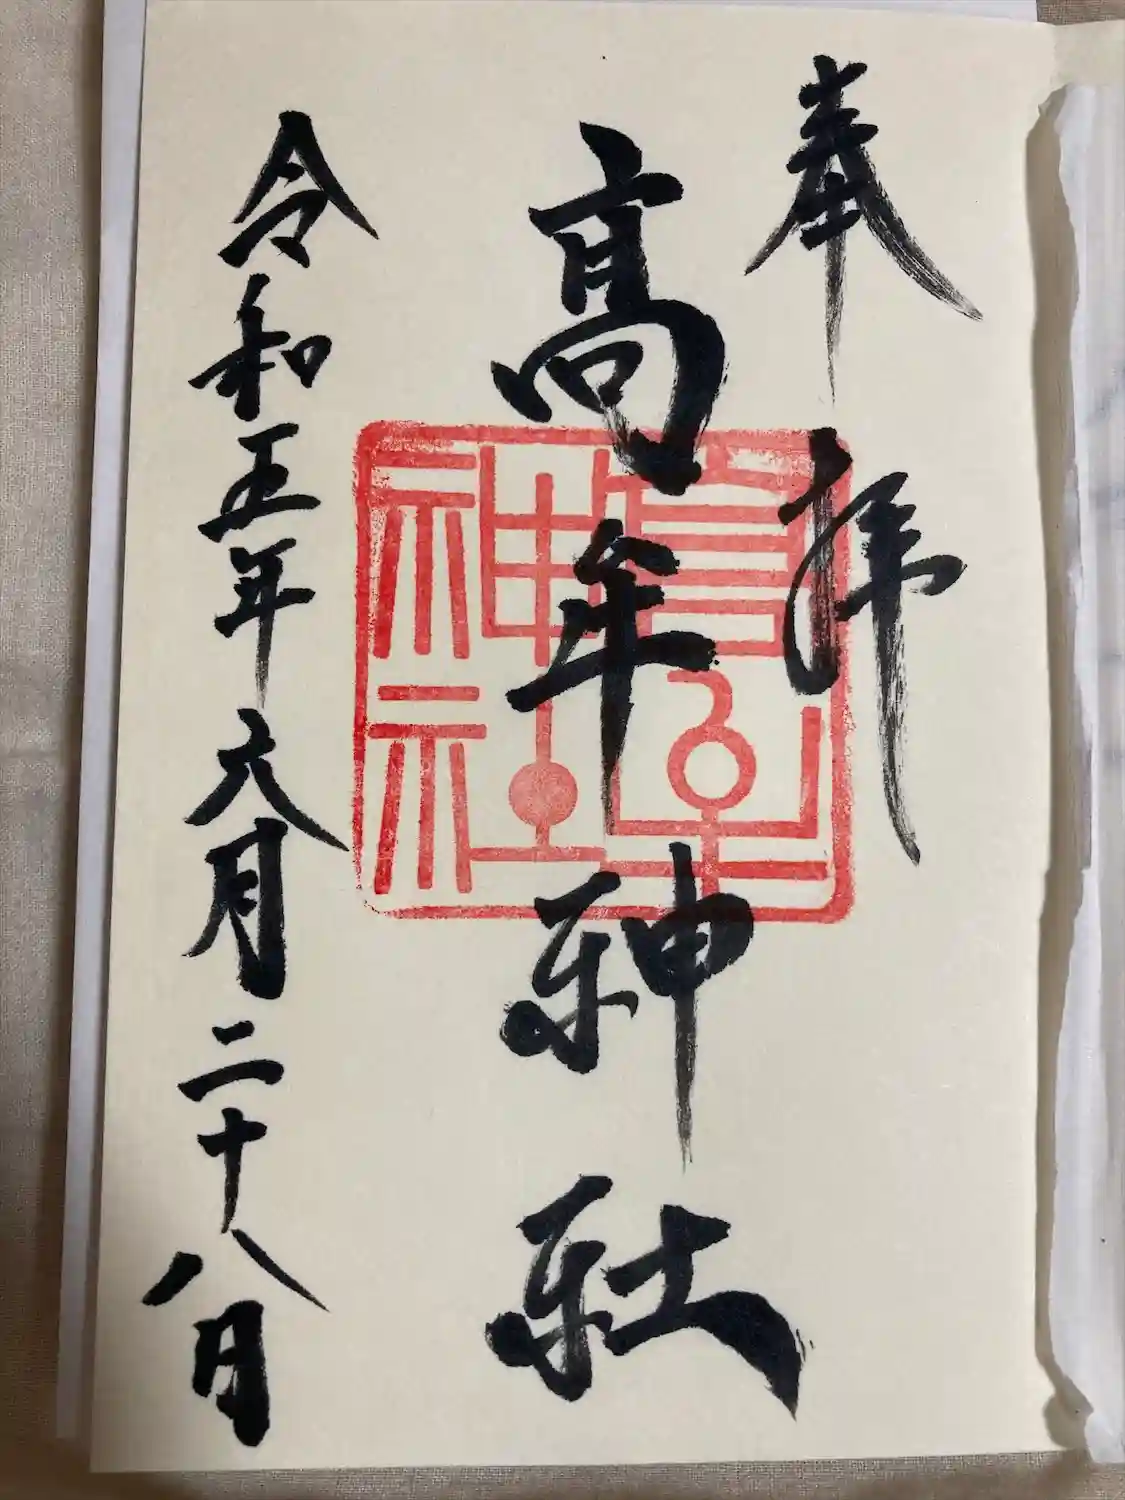 奉拝
髙牟神社
髙牟神社
令和五年六月二十八日